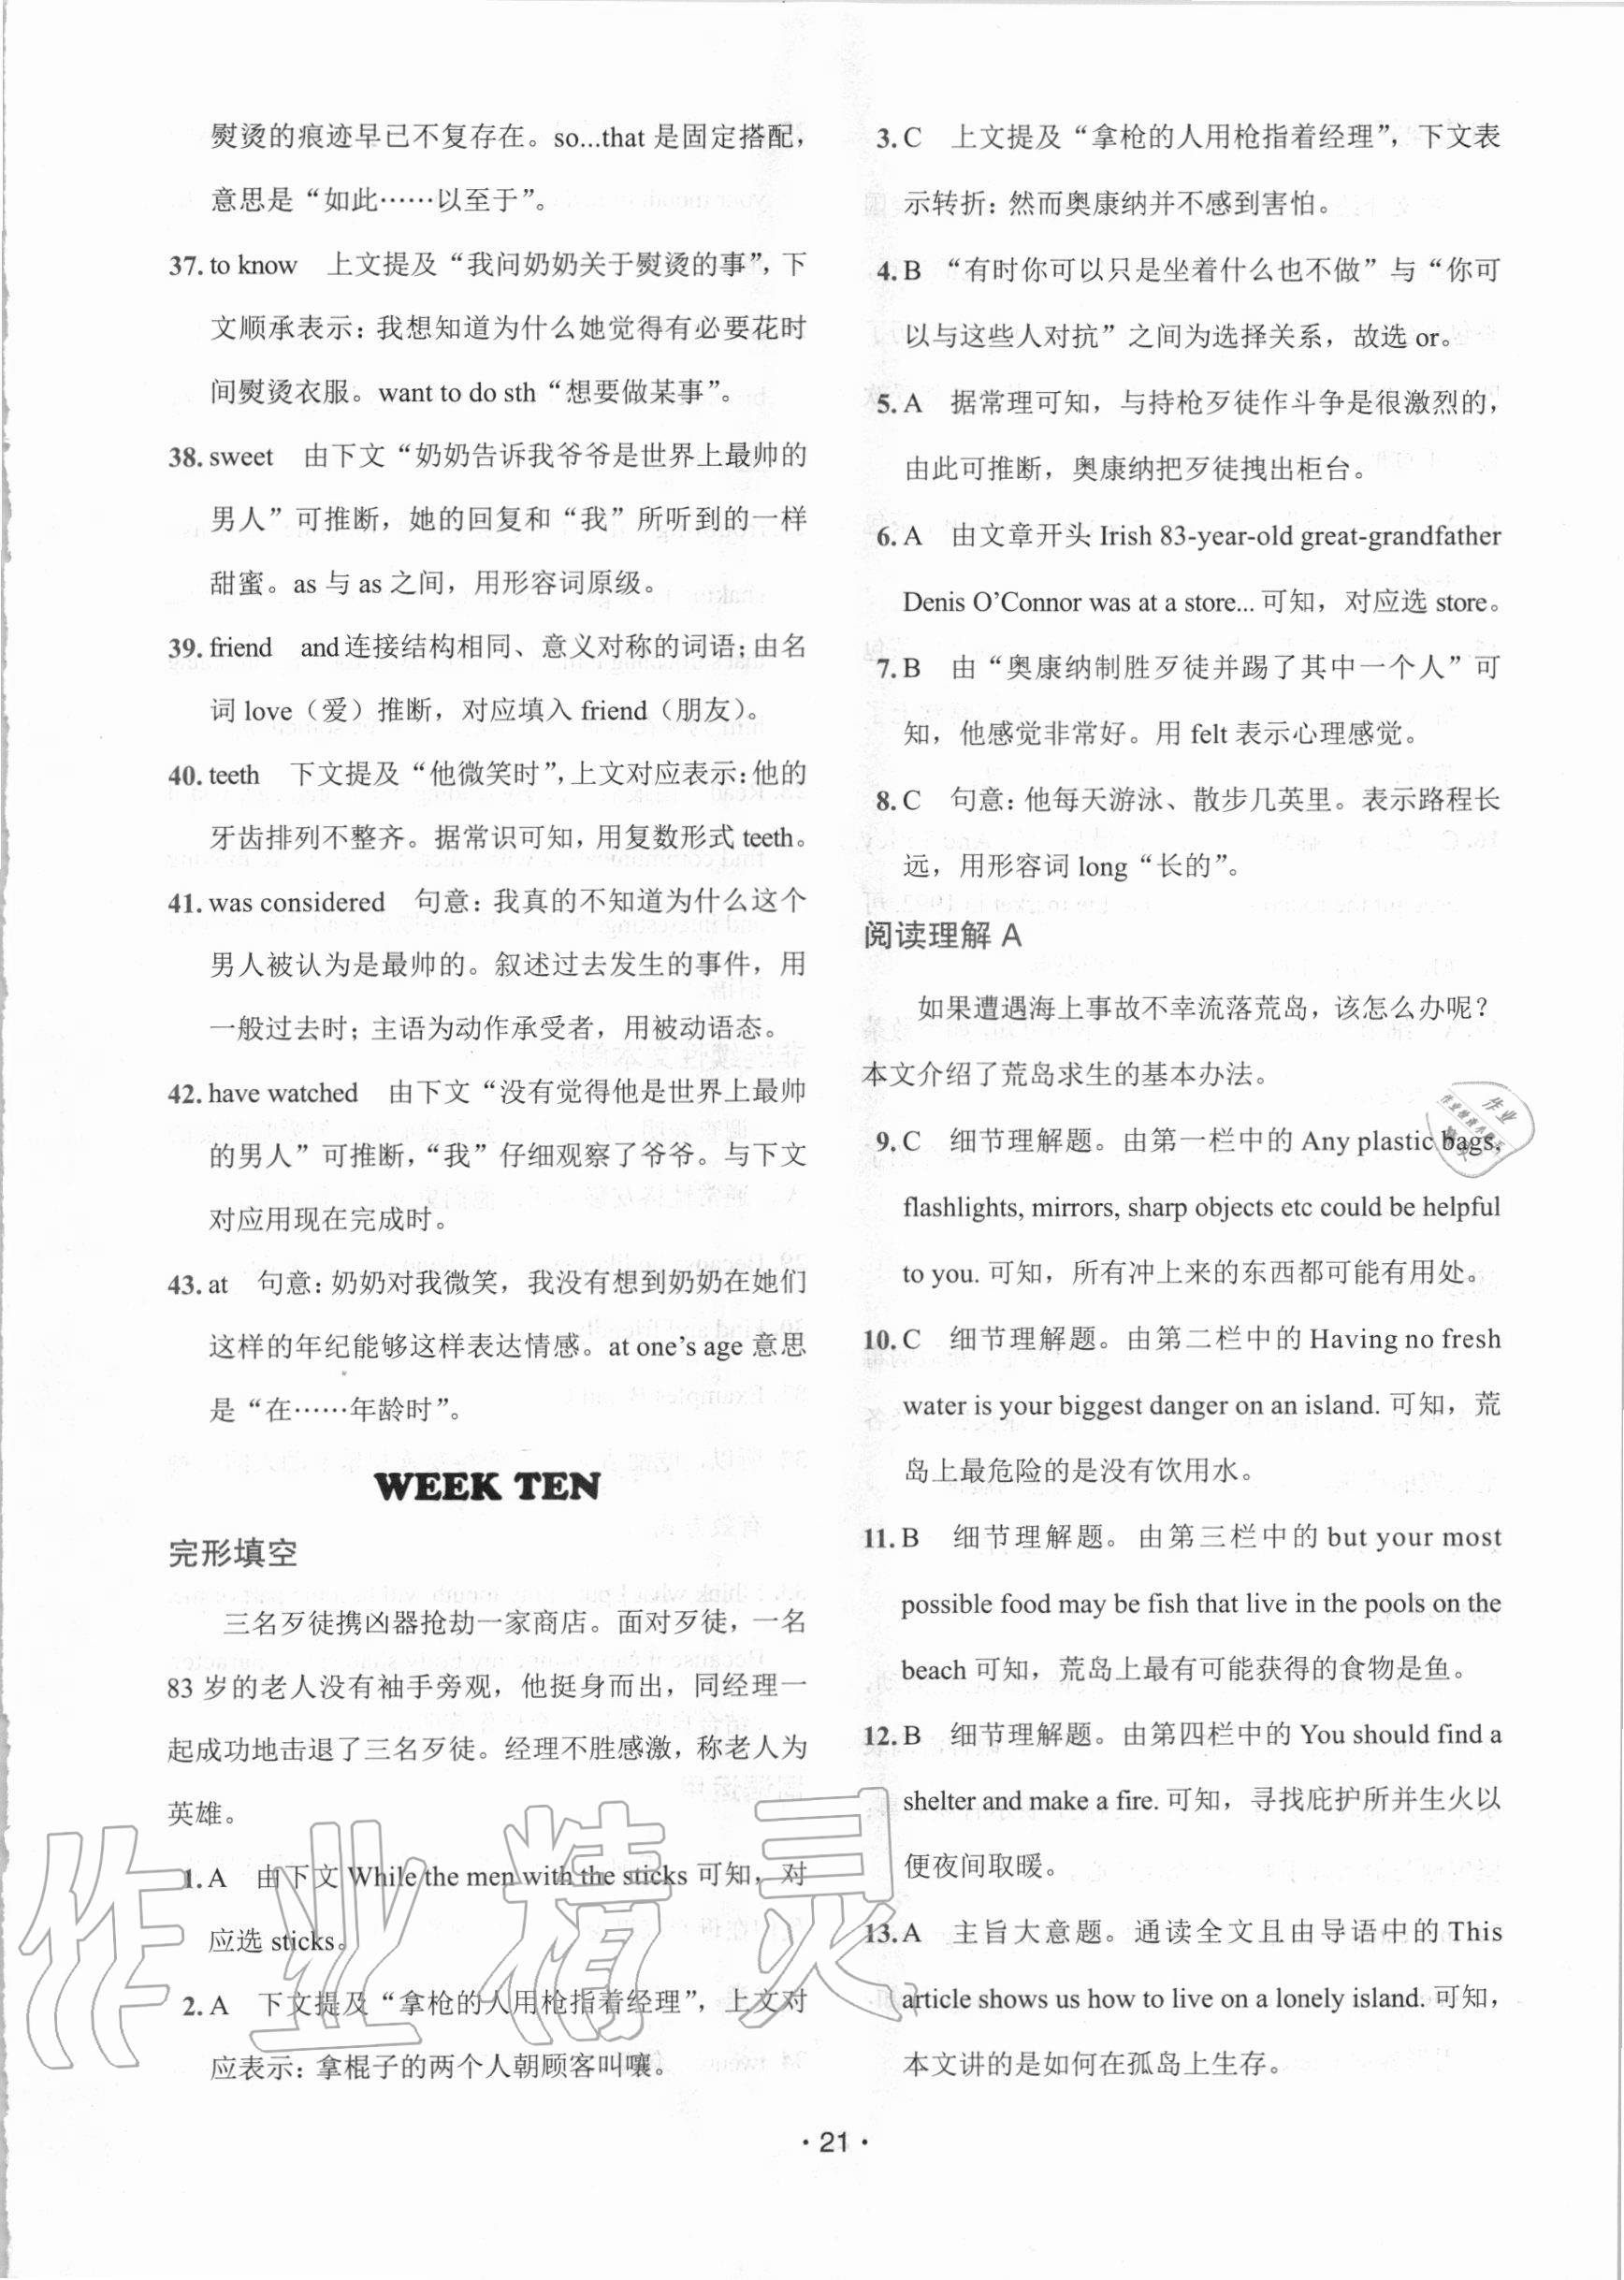 熨烫的痕迹早已不复存在。so...that 是固定搭配，
意思是“如此……以至于”。
37. to know　上文提及“我问奶奶关于熨烫的事”，下
文顺承表示：我想知道为什么她觉得有必要花时
间熨烫衣服。want to do sth“想要做某事”。
38. sweet　由下文“奶奶告诉我爷爷是世界上最帅的
男人”可推断，她的回复和“我”所听到的一样
甜蜜。as 与 as 之间，用形容词原级。
39. friend　and连接结构相同、意义对称的词语；由名
词 love（爱）推断，对应填入 friend（朋友）。
40. teeth　下文提及“他微笑时”，上文对应表示：他的
牙齿排列不整齐。据常识可知，用复数形式 teeth。
41. was considered　句意：我真的不知道为什么这个
男人被认为是最帅的。叙述过去发生的事件，用
一般过去时；主语为动作承受者，用被动语态。
42. have watched　由下文“没有觉得他是世界上最帅
的男人”可推断，“我”仔细观察了爷爷。与下文
对应用现在完成时。
43. at　句意：奶奶对我微笑，我没有想到奶奶在她们
这样的年纪能够这样表达情感。at one's age 意思
是“在……年龄时”。
WEEK TEN
完形填空
三名歹徒携凶器抢劫一家商店。面对歹徒，一名
83 岁的老人没有袖手旁观，他挺身而出，同经理一
起成功地击退了三名歹徒。经理不胜感激，称老人为
英雄。
1. A　由下文 While the men with the sticks 可知，对
应选 sticks。
2. A　下文提及“拿枪的人用枪指着经理”，上文对
应表示：拿棍子的两个人朝顾客叫嚷。
3. C　上文提及“拿枪的人用枪指着经理”，下文表
示转折：然而奥康纳并不感到害怕。
4. B　“有时你可以只是坐着什么也不做”与“你可
以与这些人对抗”之间为选择关系，故选 or。
5. A　据常理可知，与持枪歹徒作斗争是很激烈的，
由此可推断，奥康纳把歹徒拽出柜台。
6. A　由文章开头 Irish 83-year-old great-grandfather
Denis O'Connor was at a store... 可知，对应选 store。
7. B　由“奥康纳制胜歹徒并踢了其中一个人”可
知，他感觉非常好。用 felt 表示心理感觉。
8. C　句意：他每天游泳、散步几英里。表示路程长
远，用形容词 long“长的”。
阅读理解 A
如果遭遇海上事故不幸流落荒岛，该怎么办呢？
本文介绍了荒岛求生的基本办法。
9. C　细节理解题。由第一栏中的 Any plastic bags,
flashlights, mirrors, sharp objects etc could be helpful
to you. 可知，所有冲上来的东西都可能有用处。
10. C　细节理解题。由第二栏中的 Having no fresh
water is your biggest danger on an island. 可知，荒
岛上最危险的是没有饮用水。
11. B　细节理解题。由第三栏中的 but your most
possible food may be fish that live in the pools on the
beach 可知，荒岛上最有可能获得的食物是鱼。
12. B　细节理解题。由第四栏中的 You should find a
shelter and make a fire. 可知，寻找庇护所并生火以
便夜间取暖。
13. A　主旨大意题。通读全文且由导语中的 This
article shows us how to live on a lonely island. 可知，
本文讲的是如何在孤岛上生存。
· 21 ·
作业精灵